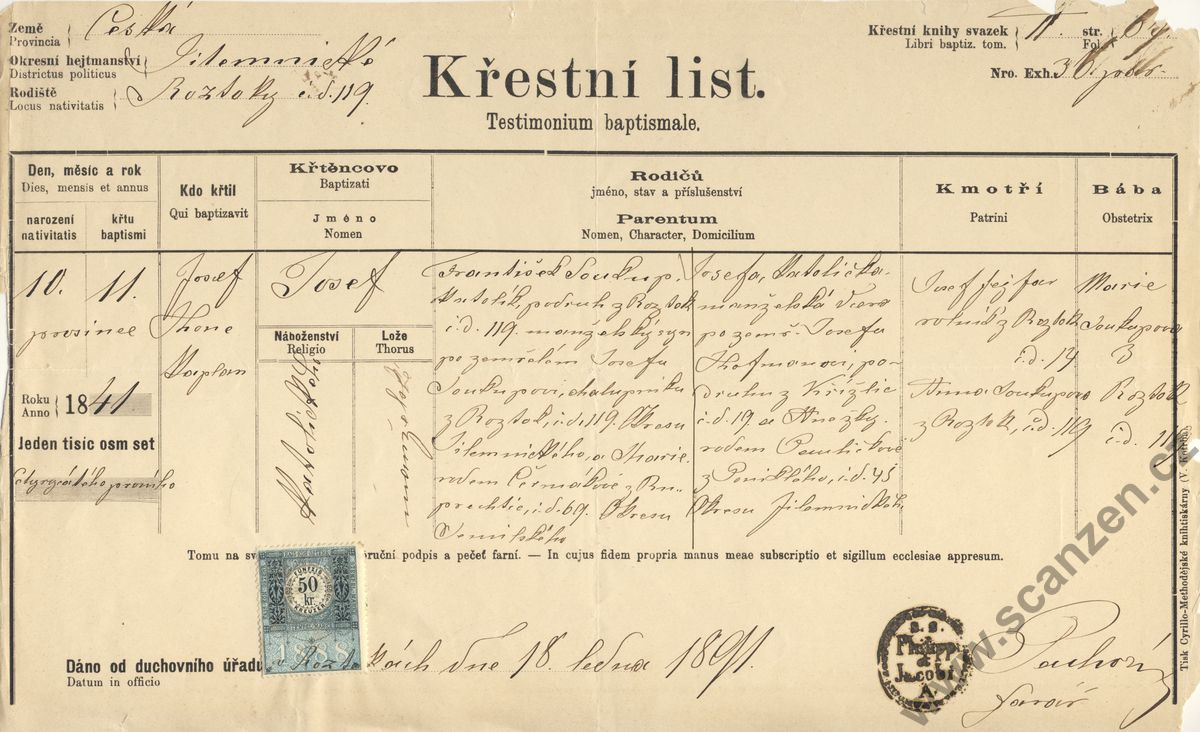 Země
Provincia
Česká
Okresní hejtmanství
Districtus politicus
Jilemnické
Rodiště
Locus nativitatis
Roztoky č.d. 119.
Křestní list.
Testimonium baptismale.
Křestní knihy svazek II. str.
Libri baptiz. tom. Fol.
Nro. Exh.
Den, měsíc a rok
Dies, mensis et annus
narození
nativitatis
křtu
baptismi
Kdo křtil
Qui baptizavit
Křtěncovo
Baptizati
Jméno
Nomen
Rodičů
jméno, stav a příslušenství
Parentum
Nomen, Character, Domicilium
Kmotří
Patrini
Bába
Obstetrix
10. 11.
prosince
Roku
Anno
1841
Jeden tisíc osm set
čtyrycátého prvního
Josef
Thone
Kaplan
Josef
Náboženství
Religio
Lože
Thorus
Katolické
František Soukup,
katolík, podruh z Roztok
č.d. 119. manželský syn
po zemřelém Josefu
Soukupovi, chalupníku
z Roztok, č.d. 119. Okresu
Jilemnického, a Marie
rodem Čermákové z
č.d. 69. Okresu
Semilského
Josefa, Katolička
manželská dcera
po zemř. Josefu
Hofmanovi, po-
druhu z Křížlic
č.d. 19 a Anežky
rodem
z Poniklého, č.d. 45
Okresu Jilemnického
Josef Fejfar
rolník z Roztok
č.d. 14
Anna Soukupova
z Roztok, č.d. 119
Marie
Soukupova
z
Roztok
č.d. 119
Tomu na ručni podpis a pečeť farní. — In cujus fidem propria manus meae subscriptio et sigillum ecclesiae appresum.
50
kr.
1888
Dáno od duchovního úřadu v Roztokách dne 18. ledna 1891.
Datum in officio
S. S.
Philippi
et
Jacobi
A.
farář
Tisk Cyrillo-Methodějské knihtiskárny (V. Kotrba)
www.scanzen.cz